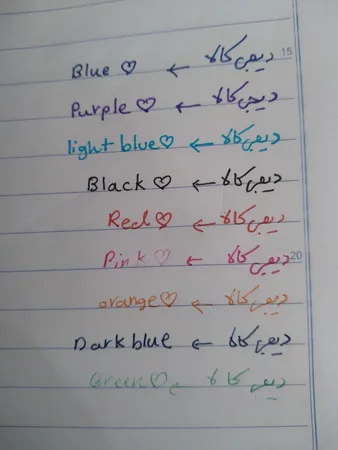 15
دیجی کالا ← Blue ♡
دیجی کالا ← Purple ♡
دیجی کالا ← light blue ♡
دیجی کالا ← Black ♡
دیجی کالا ← Red ♡
دیجی کالا ← Pink ♡ 20
دیجی کالا ← orange ♡
دیجی کالا ← Dark blue
دیجی کالا ← Green ♡